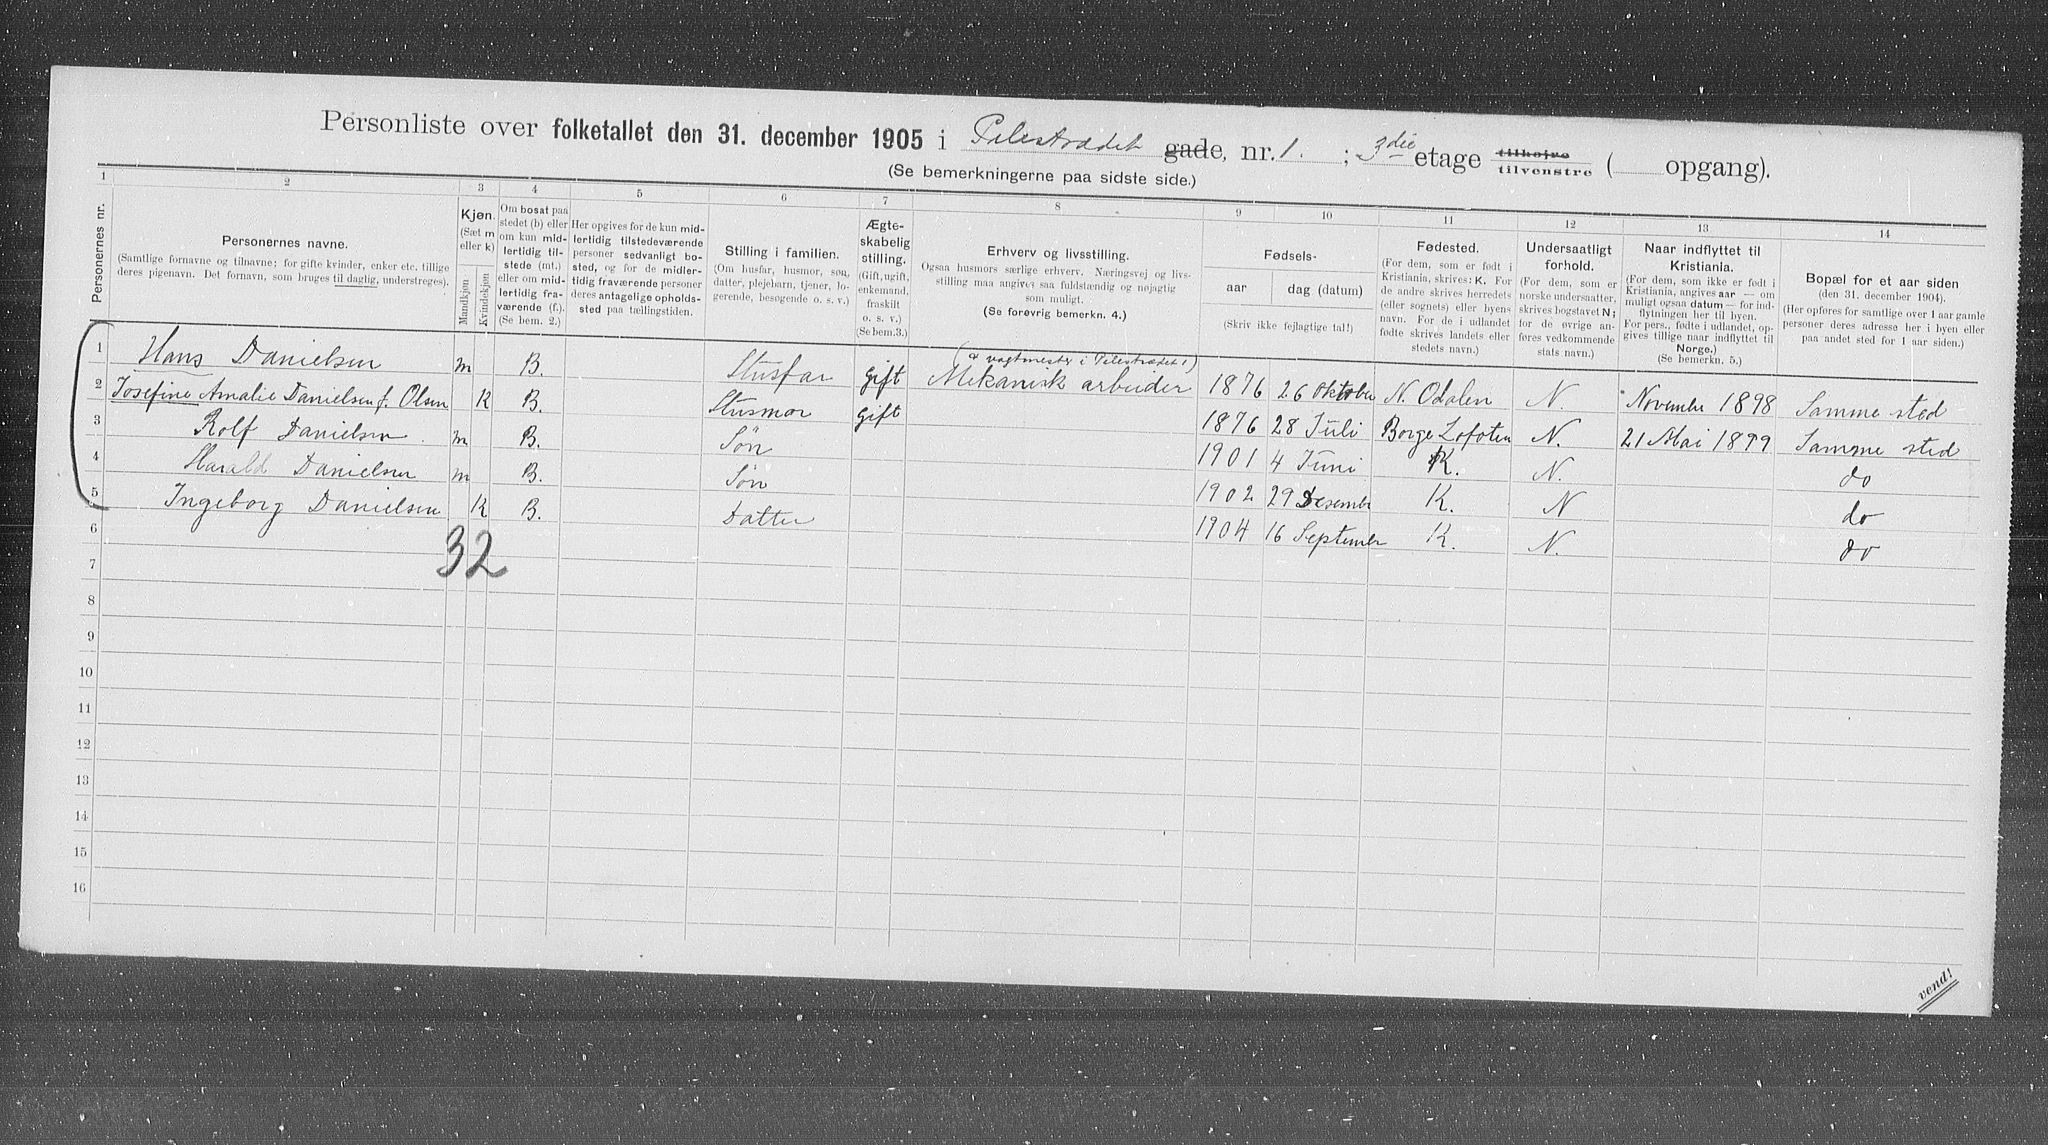 Personliste over folketallet den 31. december 1905 i Pilestrædet gade, nr. 1. ; 3die etage tilhøjre tilvenstre ( opgang).
(Se bemerkningerne paa sidste side.)
1 2 3 4 5 6 7 8 9 10 11 12 13 14
Personernes nr.
Personernes navne.
(Samtlige fornavne og tilnavne; for gifte kvinder, enker etc. tillige deres pigenavn. Det fornavn, som bruges til daglig, understreges).
Kjøn.
(Sæt m eller k)
Mandkjøn
Kvindekjøn
Om bosat paa stedet (b) eller om kun midlertidig tilstede (mt.) eller om midlertidig fraværende (f.). (Se bem. 2.)
Her opgives for de kun midlertidig tilstedeværende personer sedvanligt bosted, og for de midlertidig fraværende personer deres antagelige opholdssted paa tællingstiden.
Stilling i familien.
(Om husfar, husmor, søn, datter, plejebarn, tjener, logerende, besøgende o. s. v.)
Ægteskabelig stilling.
(Gift, ugift, enkemand, fraskilt o. s. v.)
(Se bem. 3.)
Erhverv og livsstilling.
Ogsaa husmors særlige erhverv. Næringsvej og livsstilling maa angives saa fuldstændig og nøjagtig som muligt.
(Se forøvrig bemerkn. 4.)
Fødsels-
aar
dag (datum)
(Skriv ikke fejlagtige tal!)
Fødested.
(For dem, som er født i Kristiania, skrives: K. For de andre skrives herredets (eller sognets) eller byens navn. For de i udlandet fødte skrives landets eller stedets navn.)
Undersaatligt forhold.
(For dem, som er norske undersaatter, skrives bogstavet N; for de øvrige anføres vedkommende stats navn.)
Naar indflyttet til Kristiania.
(For dem, som ikke er født i Kristiania, angives aar — om muligt ogsaa datum — for indflytningen her til byen. For pers., fødte i udlandet, opgives tillige naar indflyttet til Norge.)
(Se bemerkn. 5.)
Bopæl for et aar siden
(den 31. december 1904).
(Her opføres for samtlige over 1 aar gamle personer deres adresse her i byen eller paa andet sted for 1 aar siden.)
1 Hans Danielsen m B. Husfar gift (& vagtmester i Pilestrædet 1) Mekanisk arbeider 1876 26 Oktober N. Odalen N. November 1898 Samme sted
2 Josefine Amalie Danielsen f. Olsen K B. Husmor gift 1876 28 Juli Borge Lofoten N. 21 Mai 1899 Samme sted
3 Rolf Danielsen m B. Søn 1901 4 Juni K. N. do
4 Harald Danielsen m B. Søn 1902 29 Desember K. N do
5 Ingeborg Danielsen K B. Datter 1904 16 September K. N. do
6
32
7
8
9
10
11
12
13
14
15
16
vend!